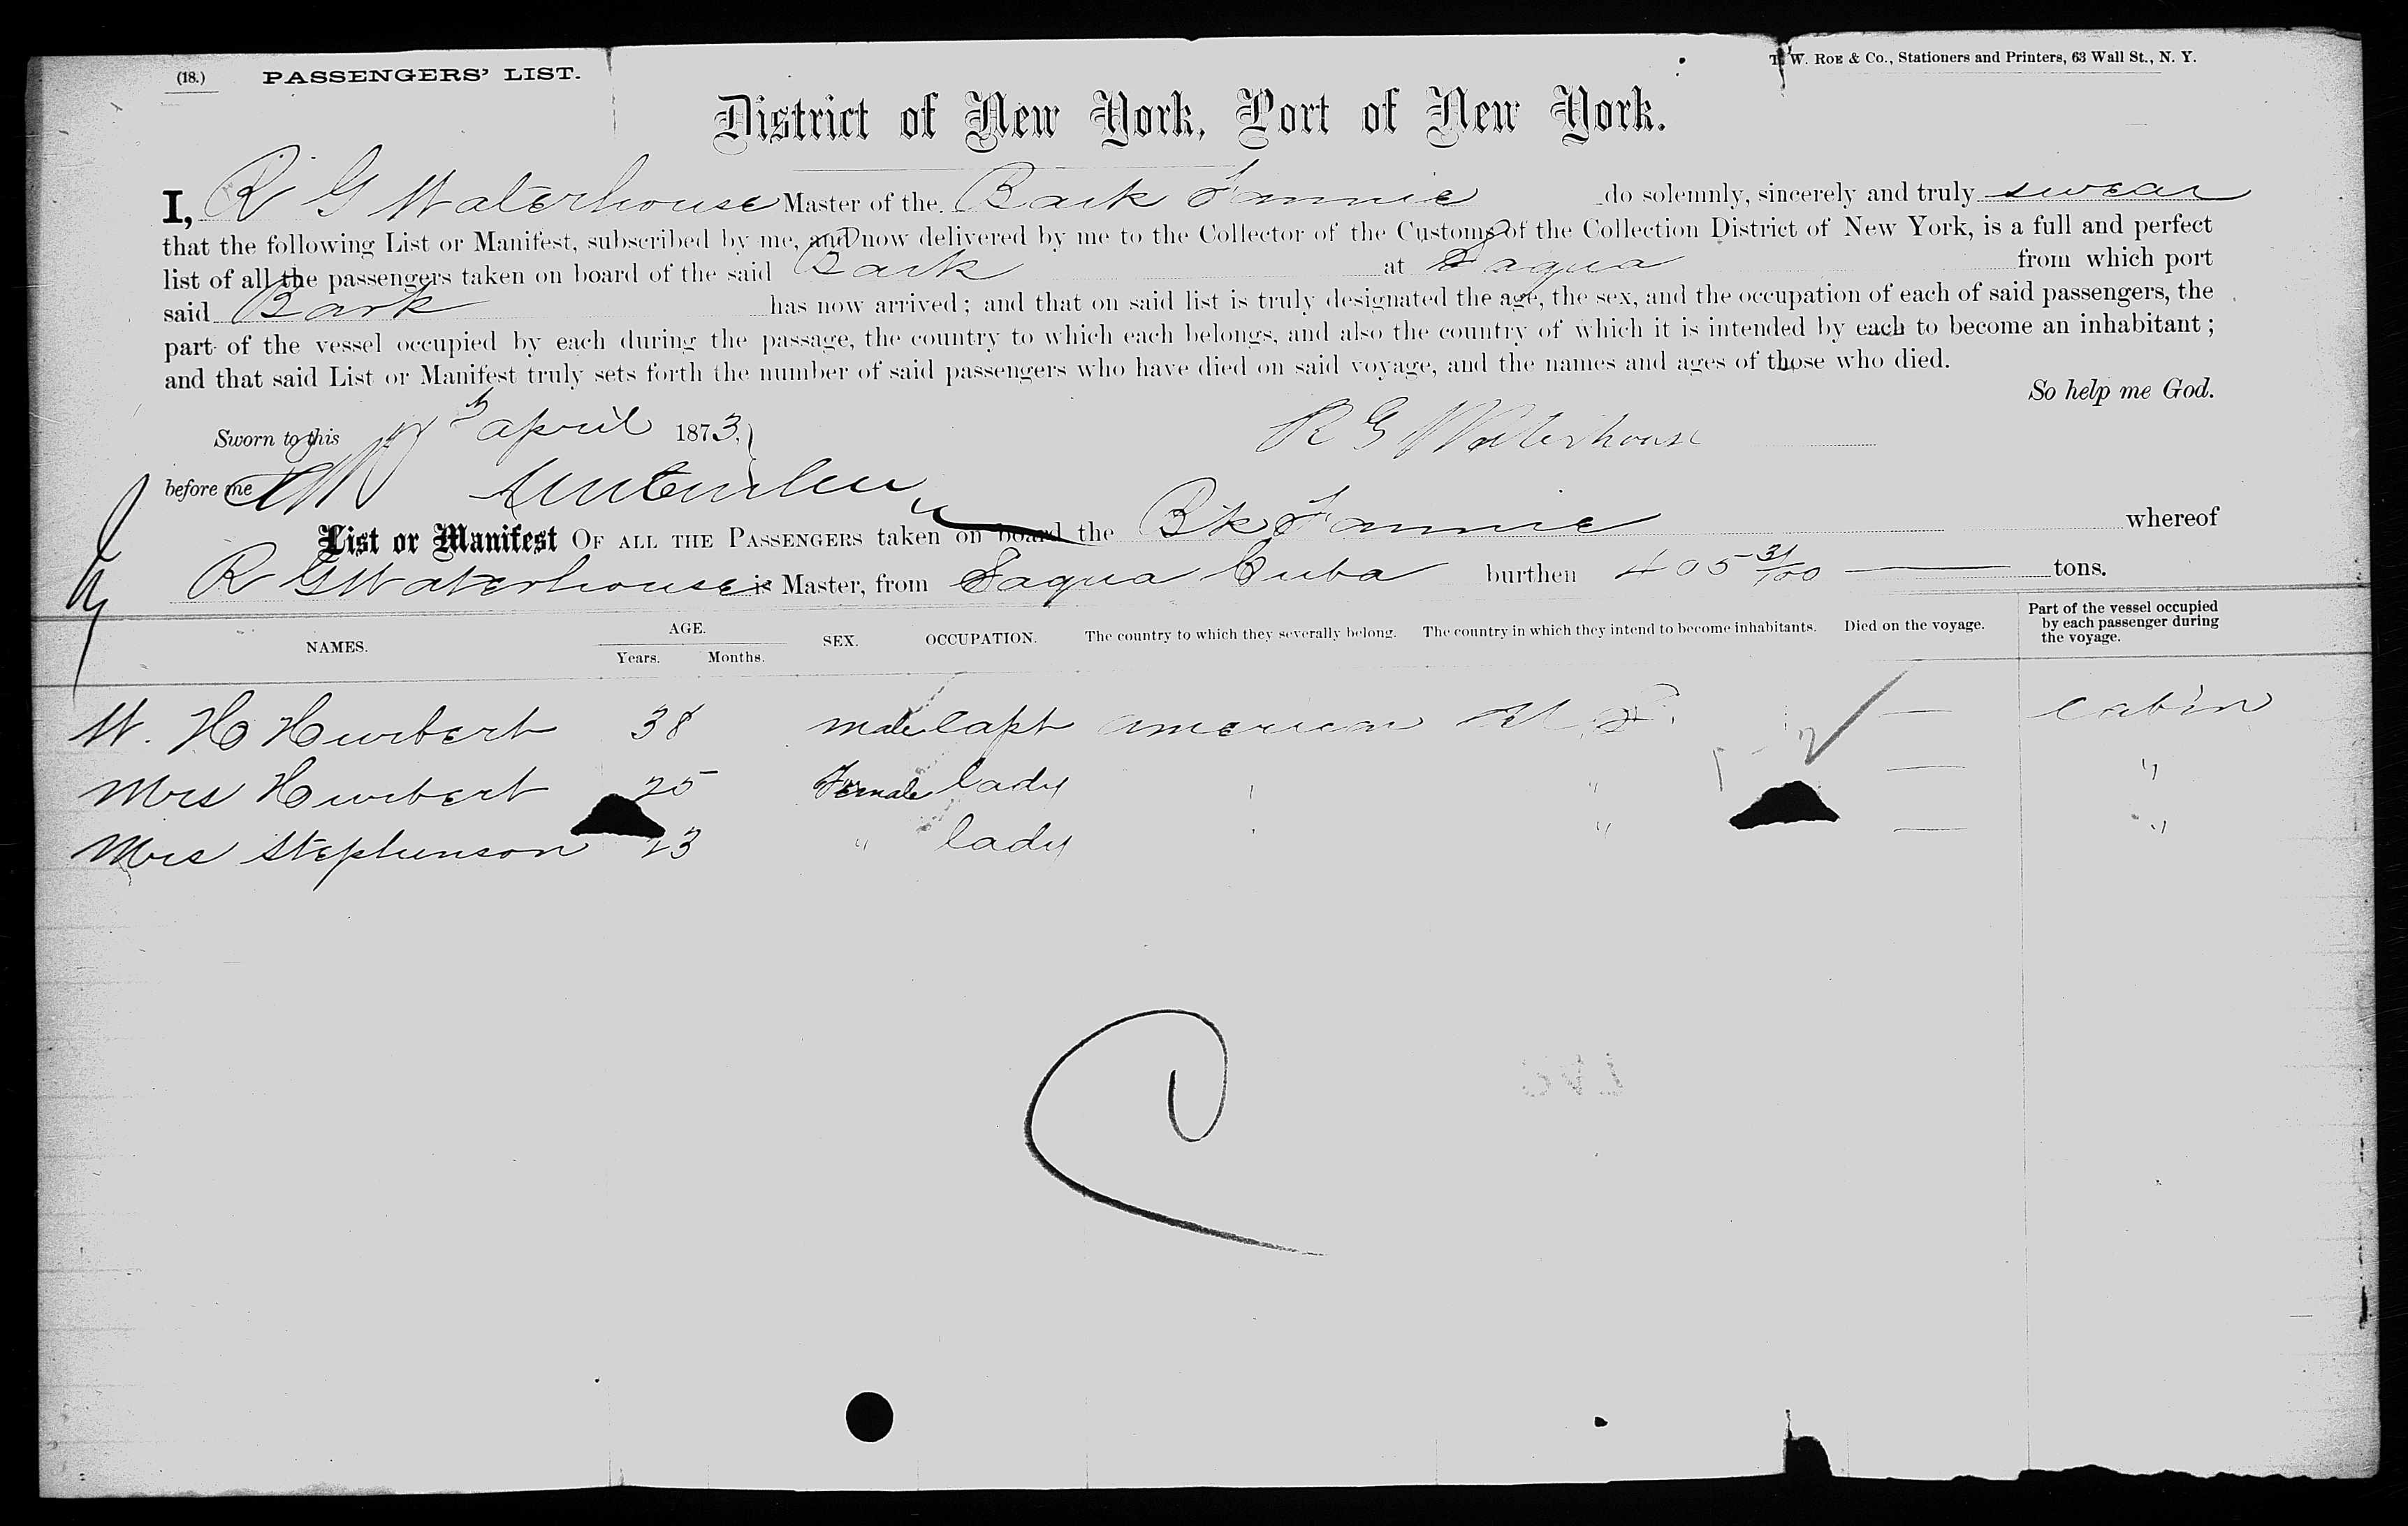 (18.) PASSENGERS' LIST.
T. W. ROE & Co., Stationers and Printers, 63 Wall St., N. Y.
District of New York, Port of New York.
I, R G Waterhouse Master of the Bark Fannie do solemnly, sincerely and truly swear
that the following List or Manifest, subscribed by me, and now delivered by me to the Collector of the Customs of the Collection District of New York, is a full and perfect
list of all the passengers taken on board of the said Bark at Sagua from which port
said Bark has now arrived; and that on said list is truly designated the age, the sex, and the occupation of each of said passengers, the
part of the vessel occupied by each during the passage, the country to which each belongs, and also the country of which it is intended by each to become an inhabitant;
and that said List or Manifest truly sets forth the number of said passengers who have died on said voyage, and the names and ages of those who died.
So help me God.
Sworn to this april 1873, R G Waterhouse
before me
List or Manifest OF ALL THE PASSENGERS taken on board the Bk Fannie whereof
R G Waterhouse is Master, from Sagua Cuba burthen 405 31/100 tons.
NAMES. AGE. Years. Months. SEX. OCCUPATION. The country to which they severally belong. The country in which they intend to become inhabitants. Died on the voyage. Part of the vessel occupied by each passenger during the voyage.
W. H Hurbert 38 male Capt american U. S. — cabin
Mrs Hurbert 25 Female lady " — "
Mrs Stephenson 23 " lady " — "